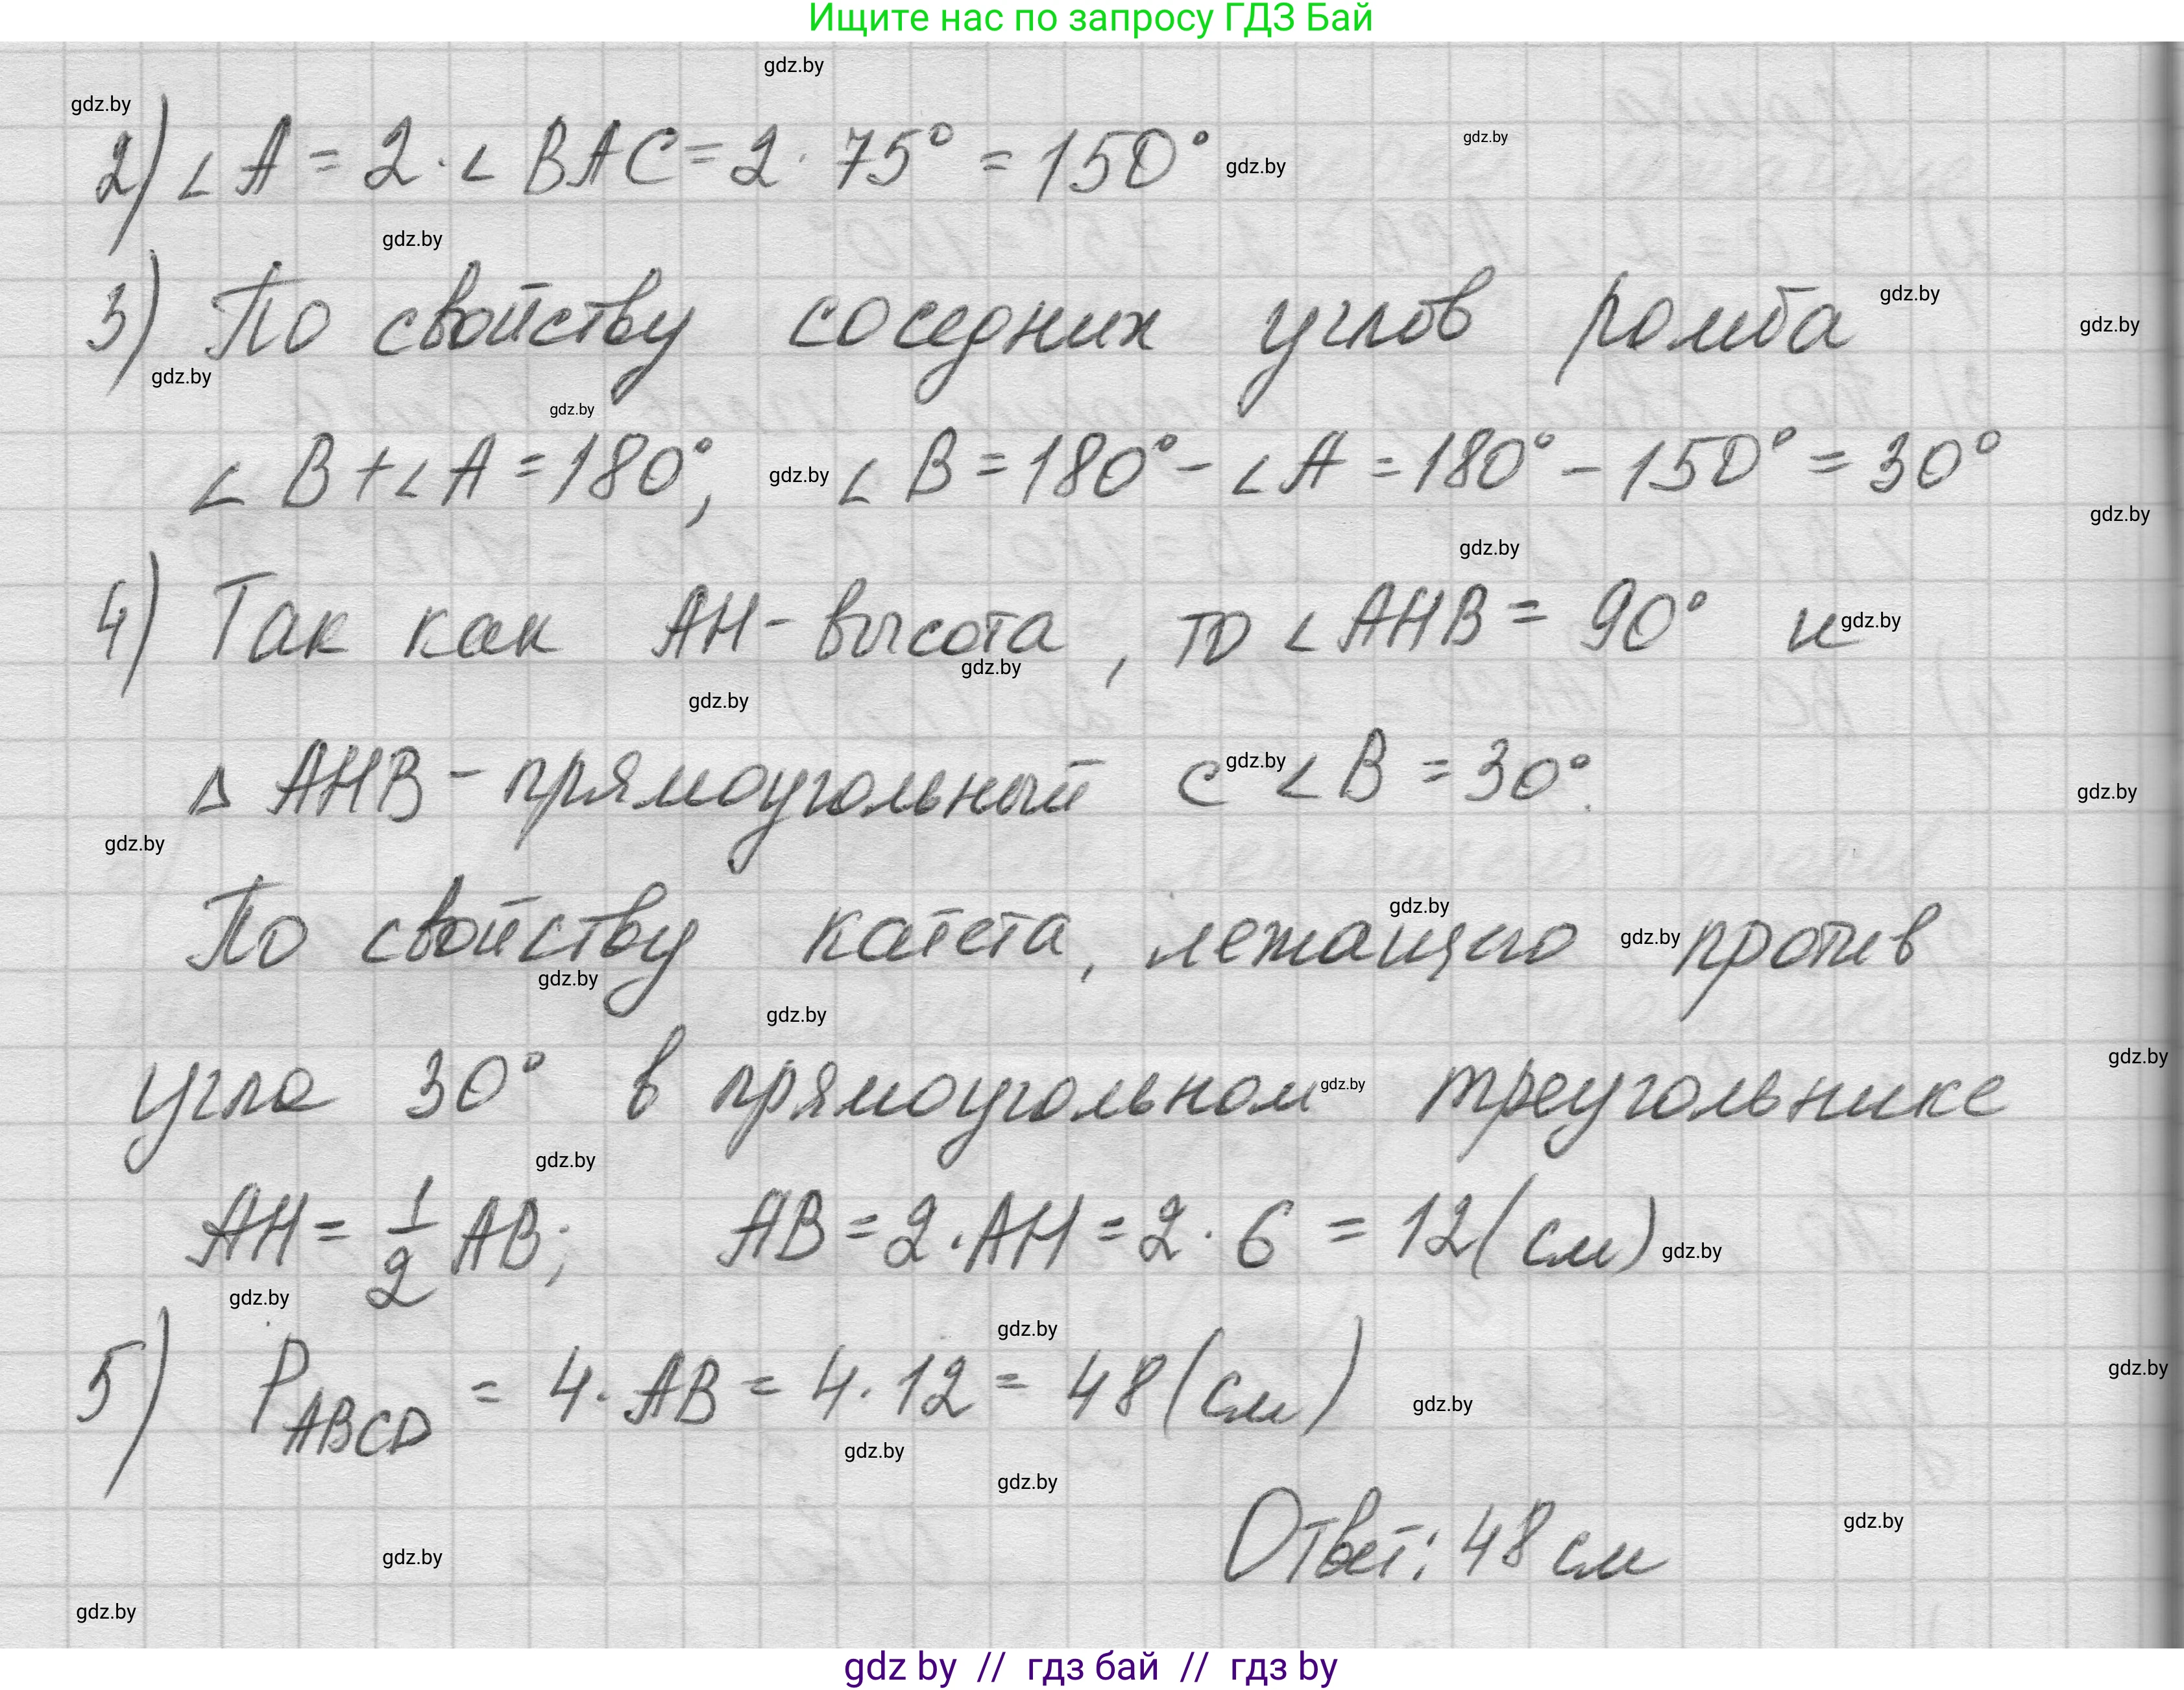 Ищите нас по запросу ГДЗ Бай
gdz.by
gdz.by
gdz.by
2) ∠A = 2·∠BAC = 2·75° = 150°
gdz.by
gdz.by
gdz.by
3) По свойству соседних углов ромба
gdz.by
gdz.by
gdz.by
∠B + ∠A = 180°; gdz.by ∠B = 180° - ∠A = 180° - 150° = 30°
gdz.by
gdz.by
4) Так как AH - высота, то ∠AHB = 90° и gdz.by
gdz.by
gdz.by
△ AHB - прямоугольный с gdz.by ∠B = 30°.
gdz.by
gdz.by
gdz.by
По свойству катета, лежащего gdz.by против
gdz.by
gdz.by
gdz.by
угла 30° в прямоугольном gdz.by треугольнике
gdz.by
AH = 1/2 AB; AB = 2·AH = 2·6 = 12 (см) gdz.by
gdz.by
gdz.by
gdz.by
5) P_ABCD = 4·AB = 4·12 = 48 (см) gdz.by
gdz.by
gdz.by
Ответ: 48 см
gdz.by
gdz.by
gdz.by
gdz by // гдз бай // гдз by